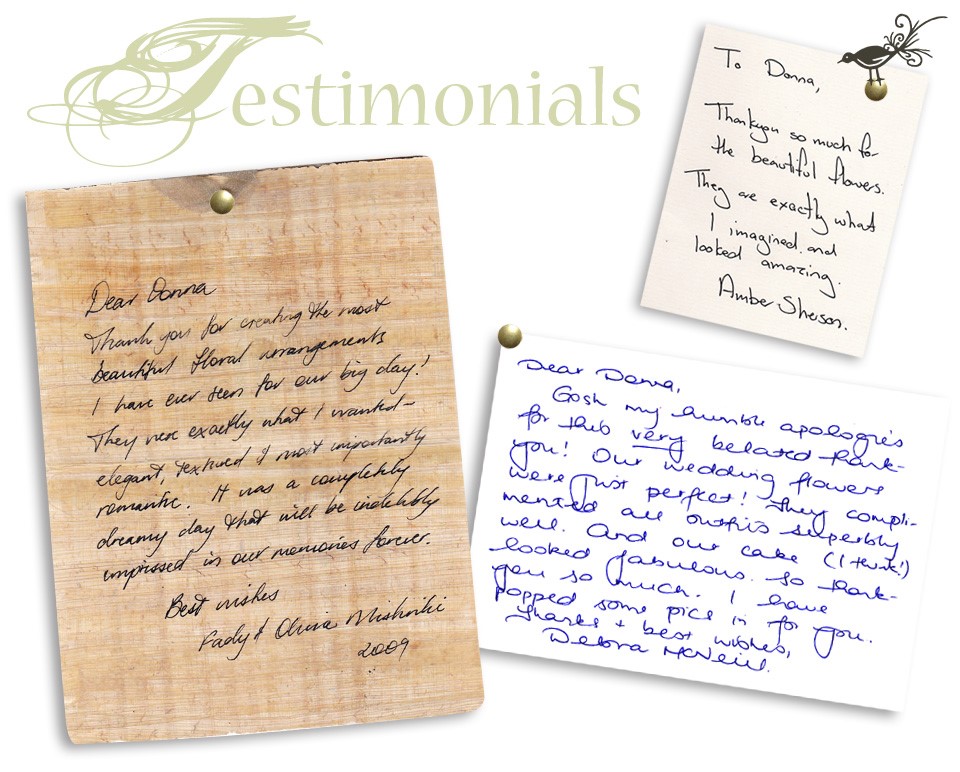 Testimonials
To Donna,
Thankyou so much for
the beautiful flowers.
They are exactly what
I imagined and
looked amazing.
Amber Sherson.
Dear Donna
Thank you for creating the most
beautiful floral arrangements
I have ever seen for our big day!
They were exactly what I wanted –
elegant, textured & most importantly
romantic. It was a completely
dreamy day that will be indelibly
impressed in our memories forever.
Best wishes
Fady & Olivia
2009
Dear Donna,
Gosh my humble apologies
for this very belated thank-
you! Our wedding flowers
were just perfect! They compli-
mented all outfits superbly
well. And our cake (I think!)
looked fabulous. So thank-
you so much. I have
popped some pics in for you.
Thanks & best wishes,
Debra McNeill.